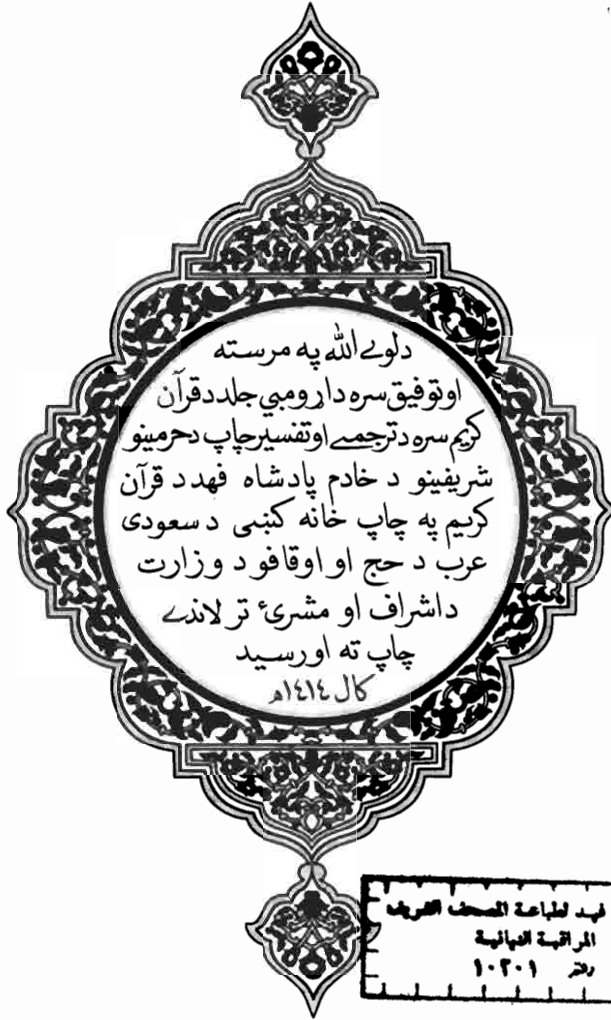 دلوے الله په مرسته
اوتوفيق سره داړومبي جلد د قرآن
كريم سره د ترجمے اوتفسير چاپ د حرمينو
شريفينو د خادم پادشاه فهد د قرآن
كريم په چاپ خانه کښی د سعودی
عرب د حج او اوقافو د وزارت
د اشراف او مشرئ تر لاندے
چاپ ته اورسيد
كال ١٤١٤ھ
فهد لطباعة المصحف الشريف
المراقبة النهائية
رقم ١٠٣٠١